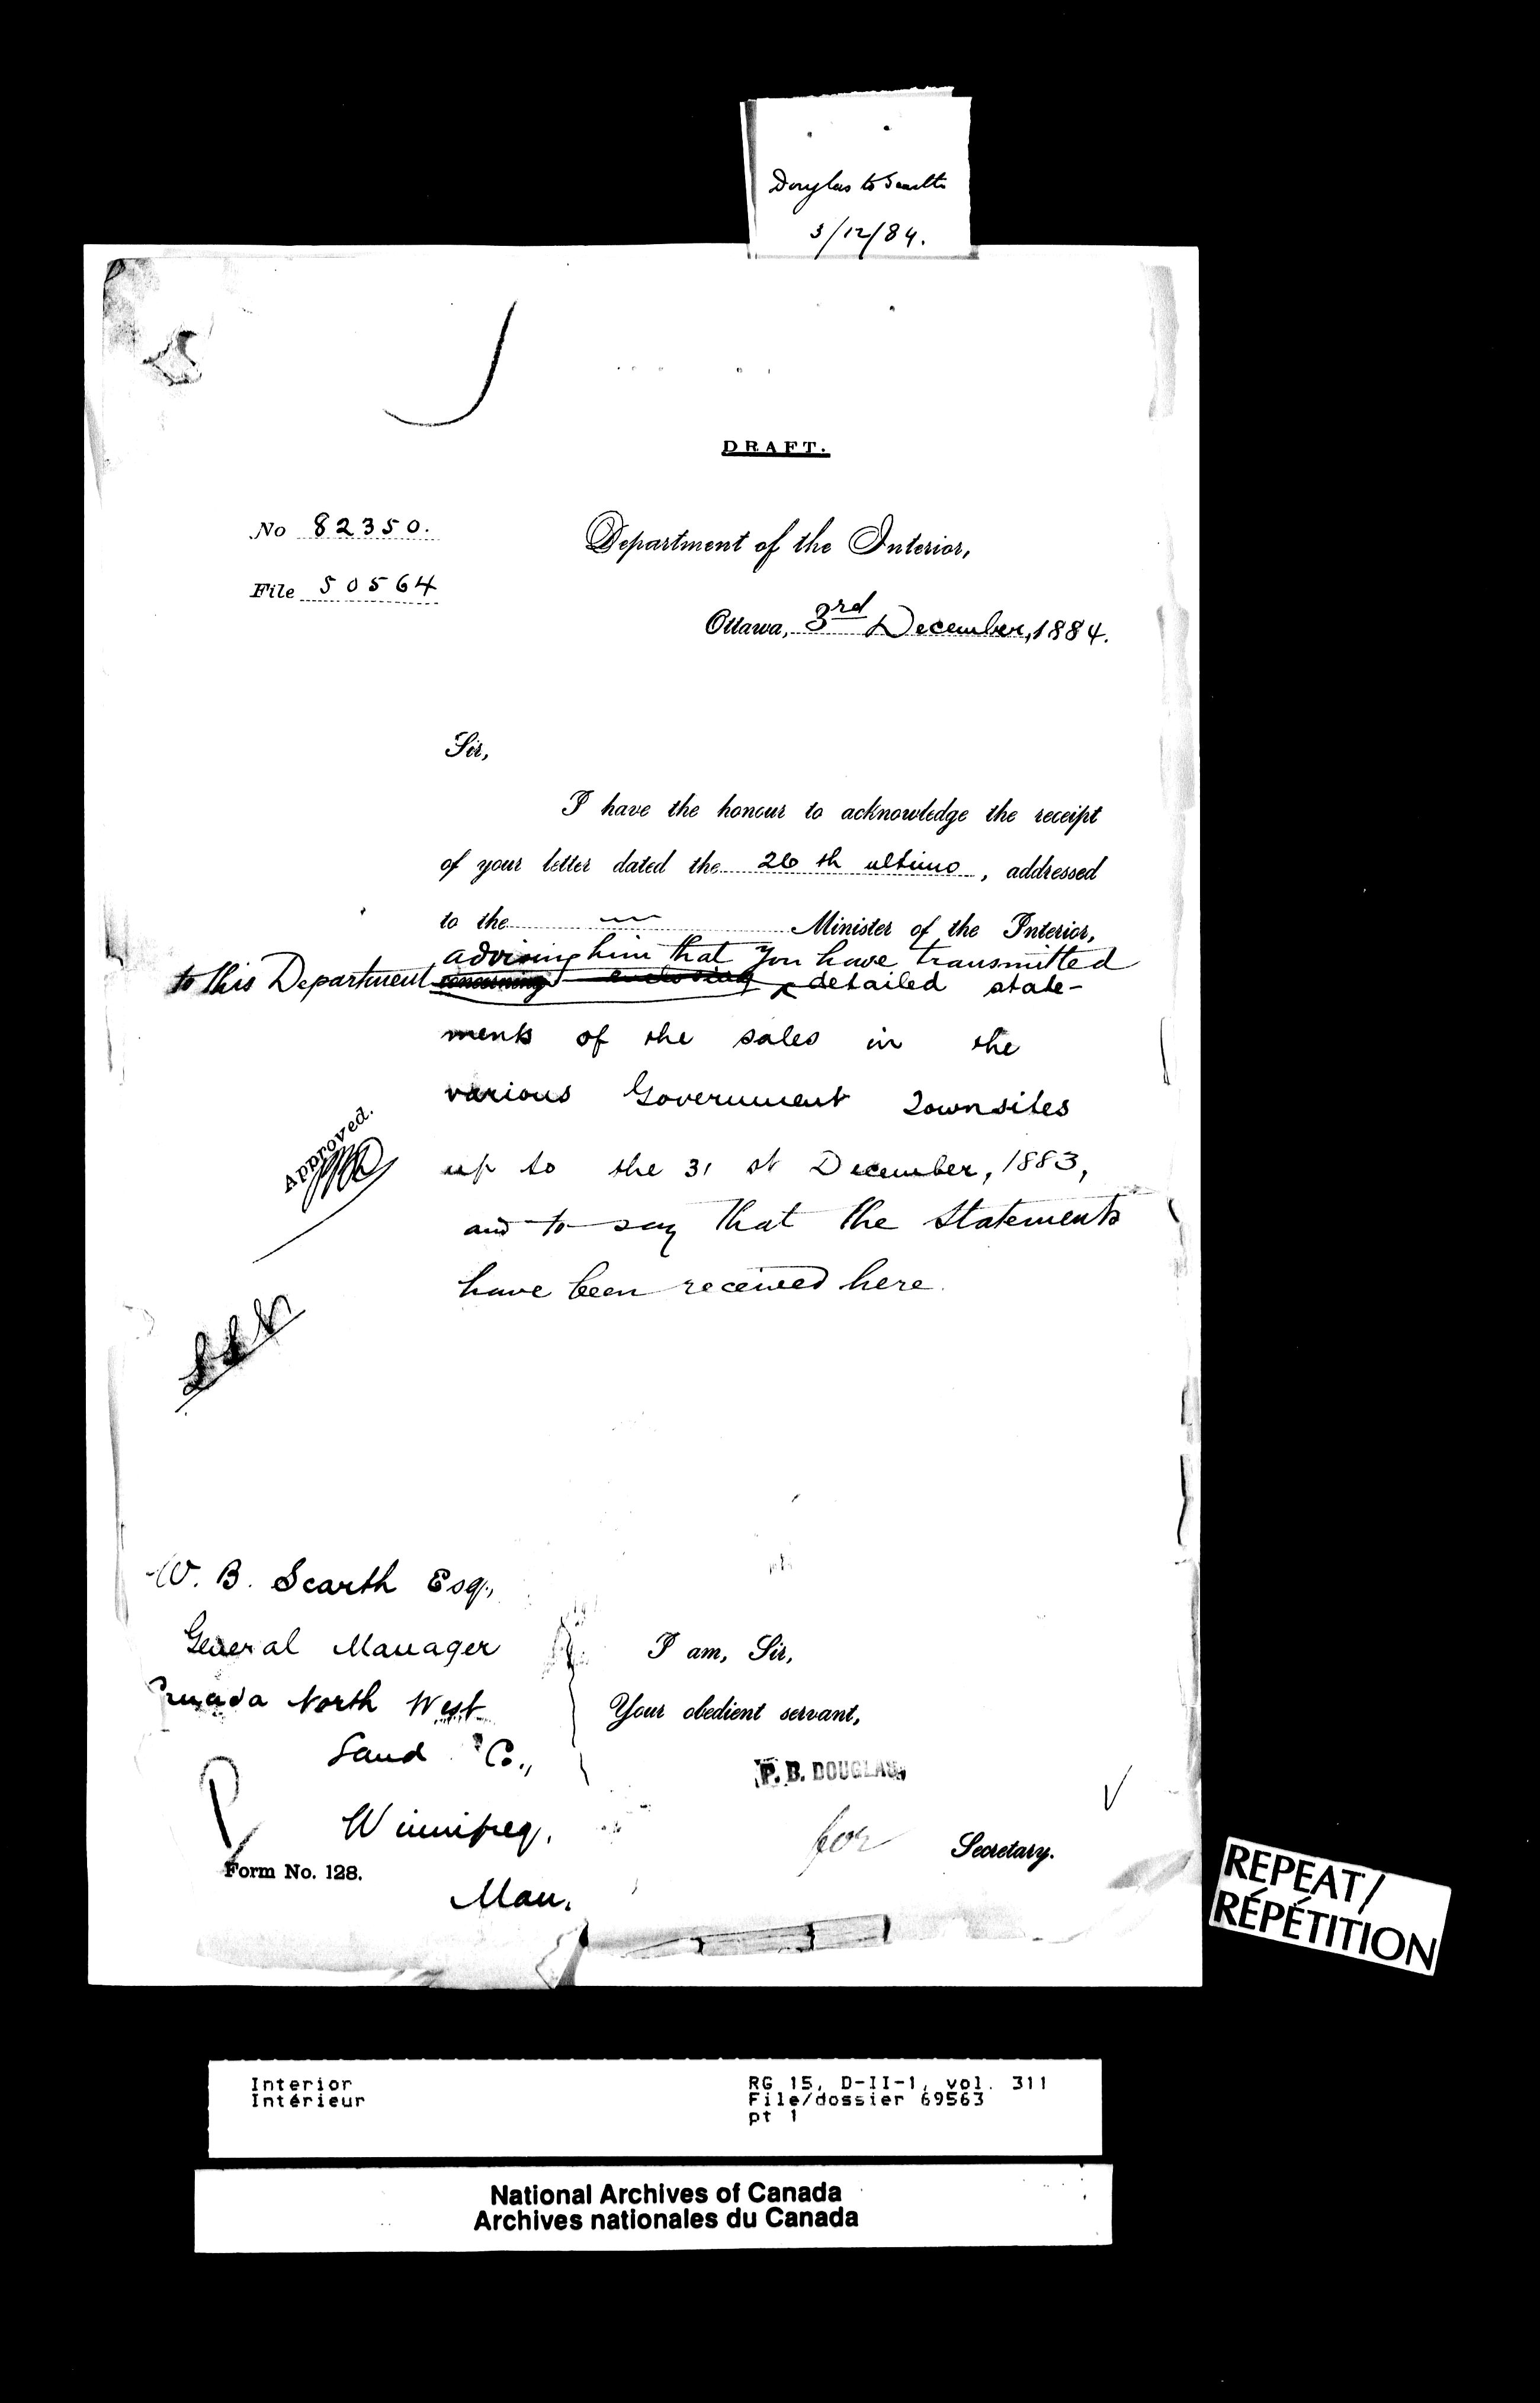 Douglas to Scarth
3/12/84.
DRAFT.
No 82350.
File 50564
Department of the Interior,
Ottawa, 3rd December, 1884.
Sir,
I have the honour to acknowledge the receipt
of your letter dated the 26th ultimo, addressed
to the Minister of the Interior,
advising him that you have transmitted
to this Department concerning enclosing detailed state-
ments of the sales in the
various Government Townsites
up to the 31st December, 1883,
and to say that the Statements
have been received here.
Approved.
W. B. Scarth Esq.,
General Manager
Canada North West
Land Co.,
Winnipeg,
Man.
I am, Sir,
Your obedient servant,
P. B. DOUGLAS,
for Secretary.
Form No. 128.
REPEAT/
RÉPÉTITION
Interior
Intérieur
RG 15, D-II-1, vol. 311
File/dossier 69563
pt 1
National Archives of Canada
Archives nationales du Canada